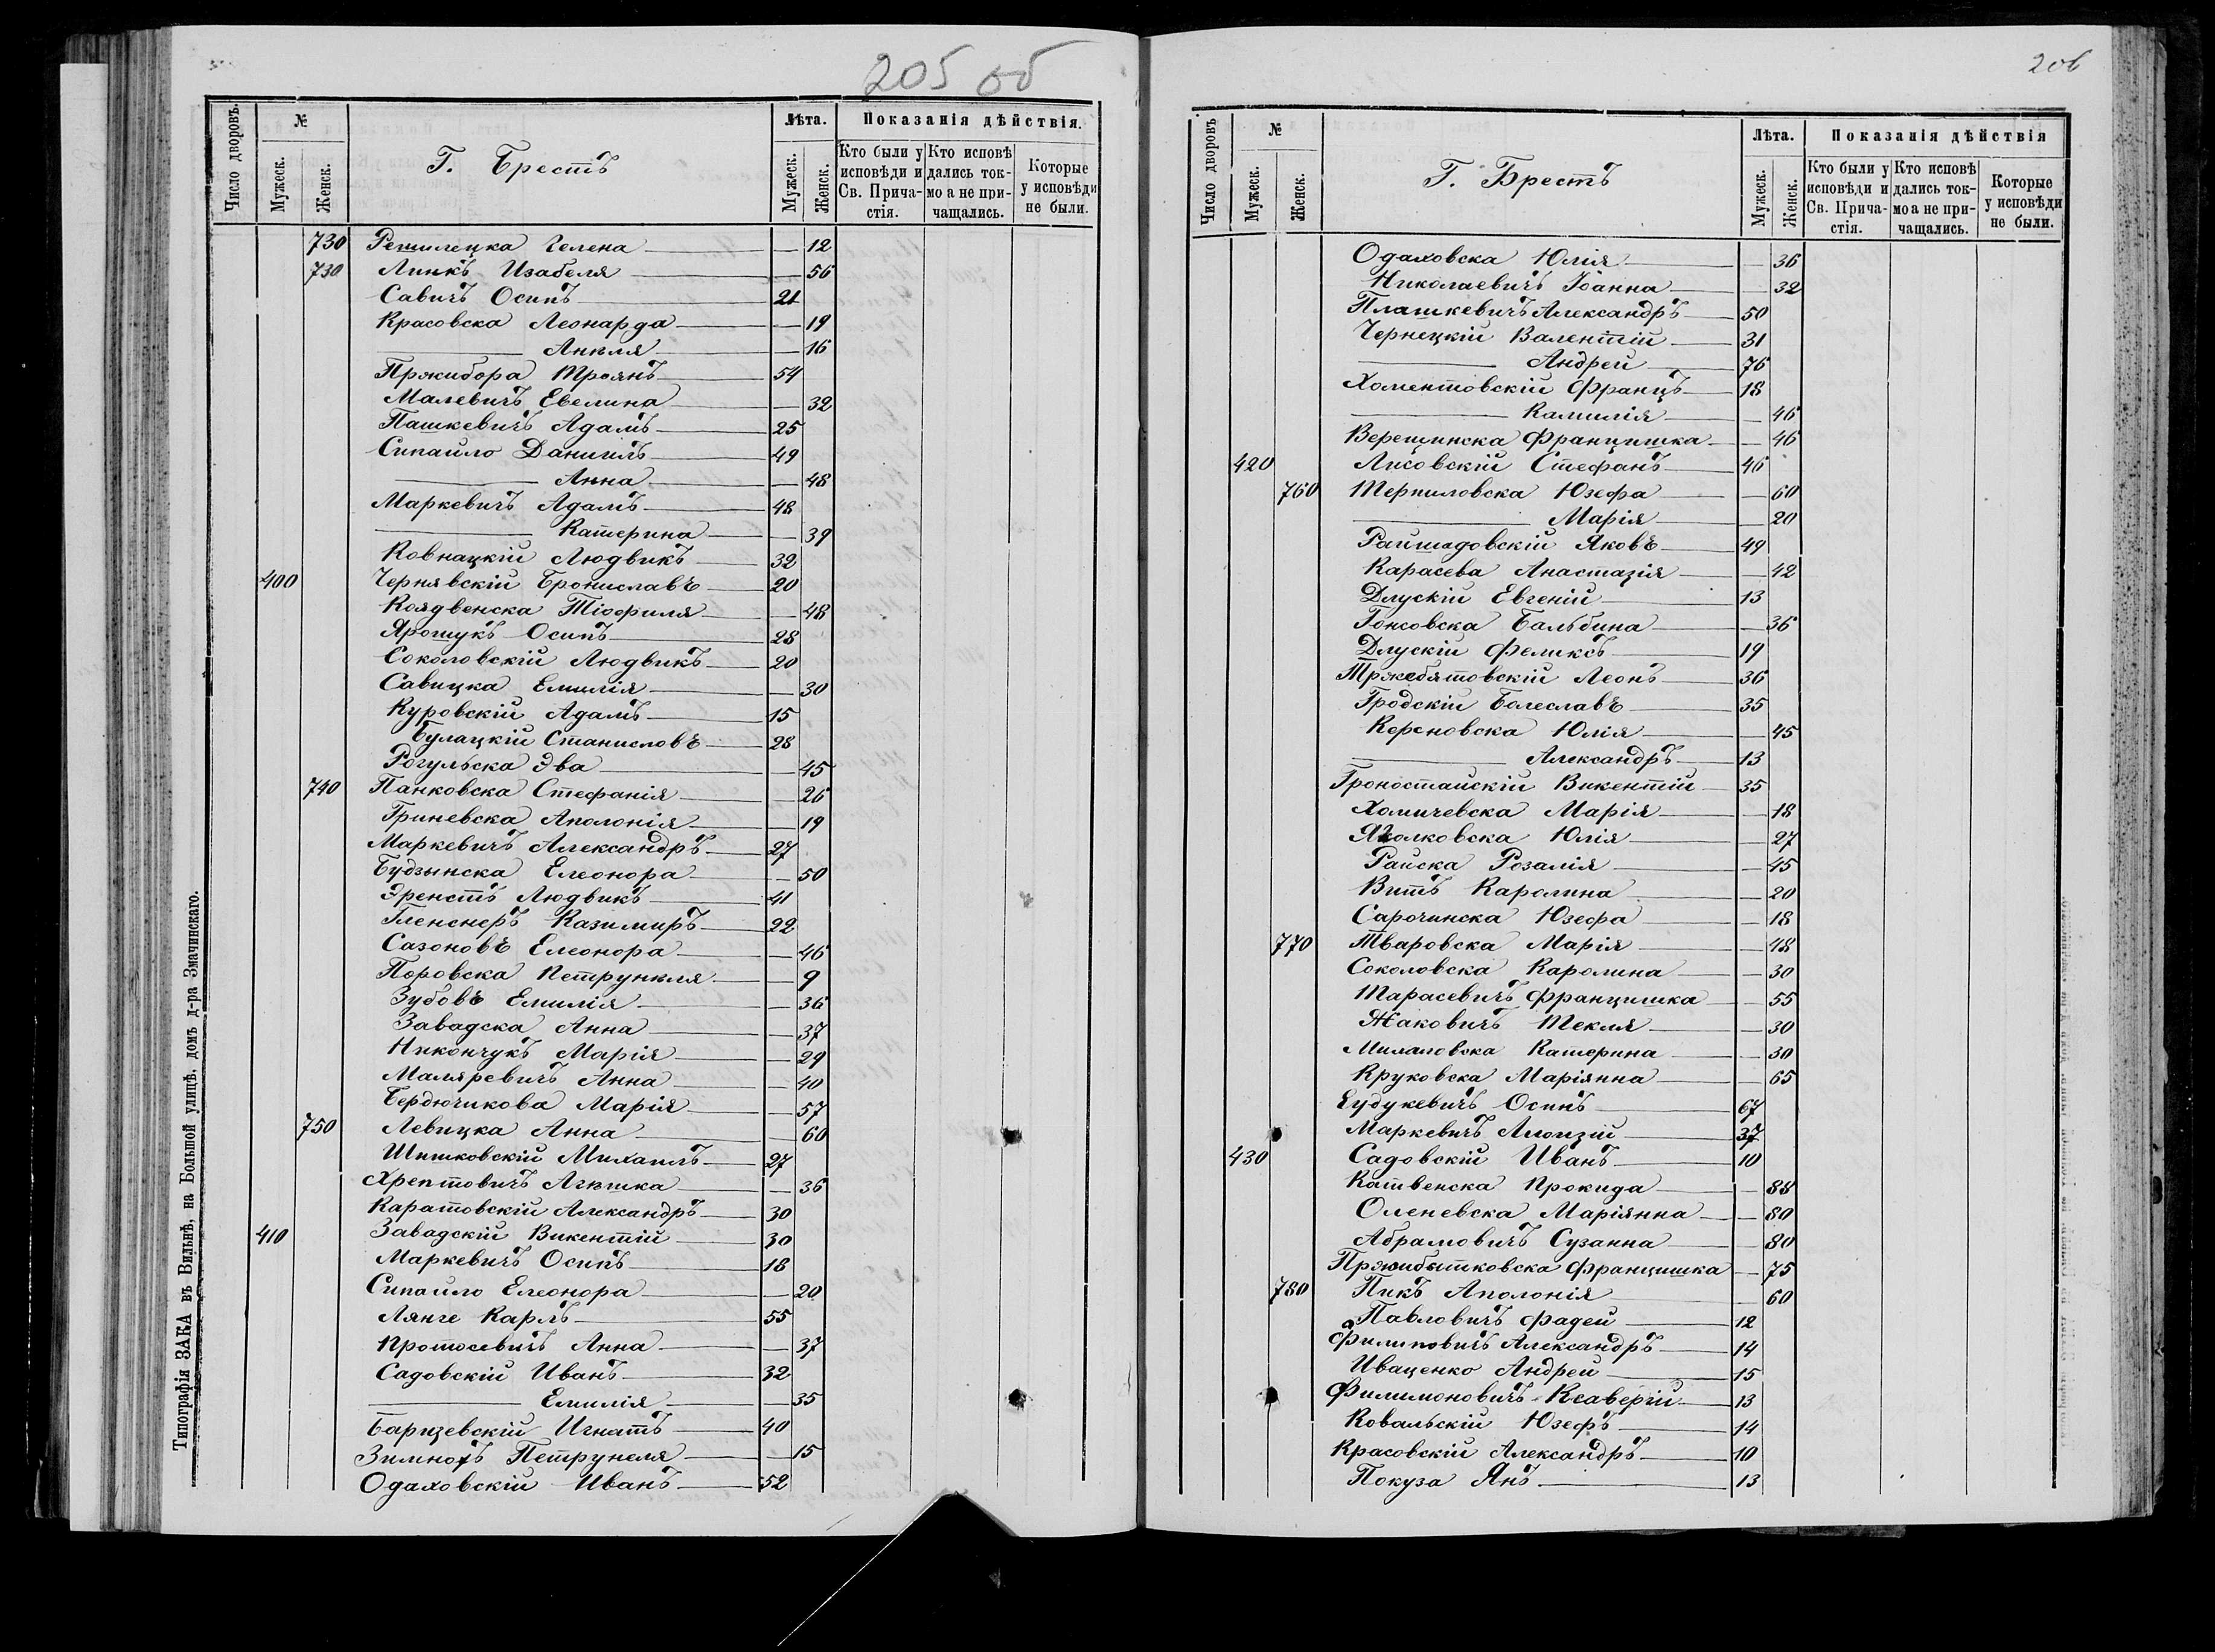 205 об
Число дворовъ.
№
Мужеск.
Женск.
Г. Брестъ
Лѣта.
Мужеск.
Женск.
Показанія дѣйствія.
Кто были у исповѣди и Св. Прича-стія.
Кто исповѣ дались ток-мо а не при-чащались.
Которые у исповѣди не были.
730 Гелена — 12
730 Линкъ Изабеля — 56
Савичъ Осипъ 21
Красовска Леонарда — 19
— Анеля — 16
Пржибора Троянъ 54
Малевичъ Евелина — 32
Пашкевичъ Адамъ 25
Сипайло Даниилъ 49
— Анна — 48
Маркевичъ Адамъ 48
— Катерина — 39
Ковнацкій Людвикъ 32
400 Чернявскій Брониславъ 20
Тіофиля — 48
Ярошукъ Осипъ 28
Соколовскій Людвикъ 20
Савицка Емилія — 30
Куровскій Адамъ 15
Булацкій Станиславъ 28
Рогульска Эва — 45
740 Панковска Стефанія — 26
Гриневска Аполонія — 19
Маркевичъ Александръ 27
Будзынска Елеонора — 50
Эренстъ Людвикъ 41
Гленснеръ Казимиръ 22
Сазоновъ Елеонора — 46
Поровска Петрунеля — 9
Зубовъ Емилія — 36
Завадска Анна — 37
Никончукъ Марія — 29
Маляревичъ Анна — 40
Бердючикова Марія — 57
750 Левицка Анна — 60
Шишковскій Михаилъ 27
Хрептовичъ Агнѣшка — 36
Каратовскій Александръ 30
410 Завадскій Викентій 30
Маркевичъ Осипъ 18
Сипайло Елеонора — 20
Лянге Карлъ 55
Протосевичъ Анна — 37
Садовскій Иванъ 32
— Емилія — 35
Баризевскій Игнатъ 40
Петрунеля — 15
Одаховскій Иванъ 52
Типографія ЗАКА въ Вильнѣ, на Большой улицѣ, домъ д-ра Змачинскаго.
206
Число дворовъ
№
Мужеск.
Женск.
Г. Брестъ
Лѣта.
Мужеск.
Женск.
Показанія дѣйствія
Кто были у исповѣди и Св. Прича-стія.
Кто исповѣ дались ток-мо а не при-чащались.
Которые у исповѣди не были.
Одаховска Юлія — 36
Николаевичъ Іоанна — 32
Плашкевичъ Александръ 50
Чернецкій Валентій 31
— Андрей 76
Хоментовскій Францъ 18
— Камилія — 46
Верещинска Францишка — 46
420 Лисовскій Стефанъ 46
760 Терпиловска Юзефа — 60
— Марія — 20
Яковъ 49
Карасева Анастазія — 42
Длускій Евгеній 13
Гонсовска Бальбина — 36
Длускій Феликсъ 19
Тржебятовскій Леонъ 36
Гродскій Болеславъ 35
Кереновска Юлія — 45
— Александръ 13
Гроностайскій Викентій 35
Хомичевска Марія — 18
Юлія — 27
Райска Розалія — 45
Витъ Каролина — 20
Сарочинска Юзефа — 18
770 Тваровска Марія — 48
Соколовска Каролина — 30
Тарасевичъ Францишка — 55
Жаковичъ Текля — 30
Катерина — 30
Круковска Маріянна — 65
Осипъ 67
Маркевичъ Алоизій 37
430 Садовскій Иванъ 10
Катвенска — 88
Оленевска Маріянна — 80
Абрамовичъ Сузанна — 80
Пржибытковска Францишка — 75
780 Пикъ Аполонія — 60
Павловичъ Фадей 12
Филиповичъ Александръ 14
Иващенко Андрей 15
Филимоновичъ Ксаверій 13
Ковальскій Юзефъ 14
Красовскій Александръ 10
Покуза Янъ 13